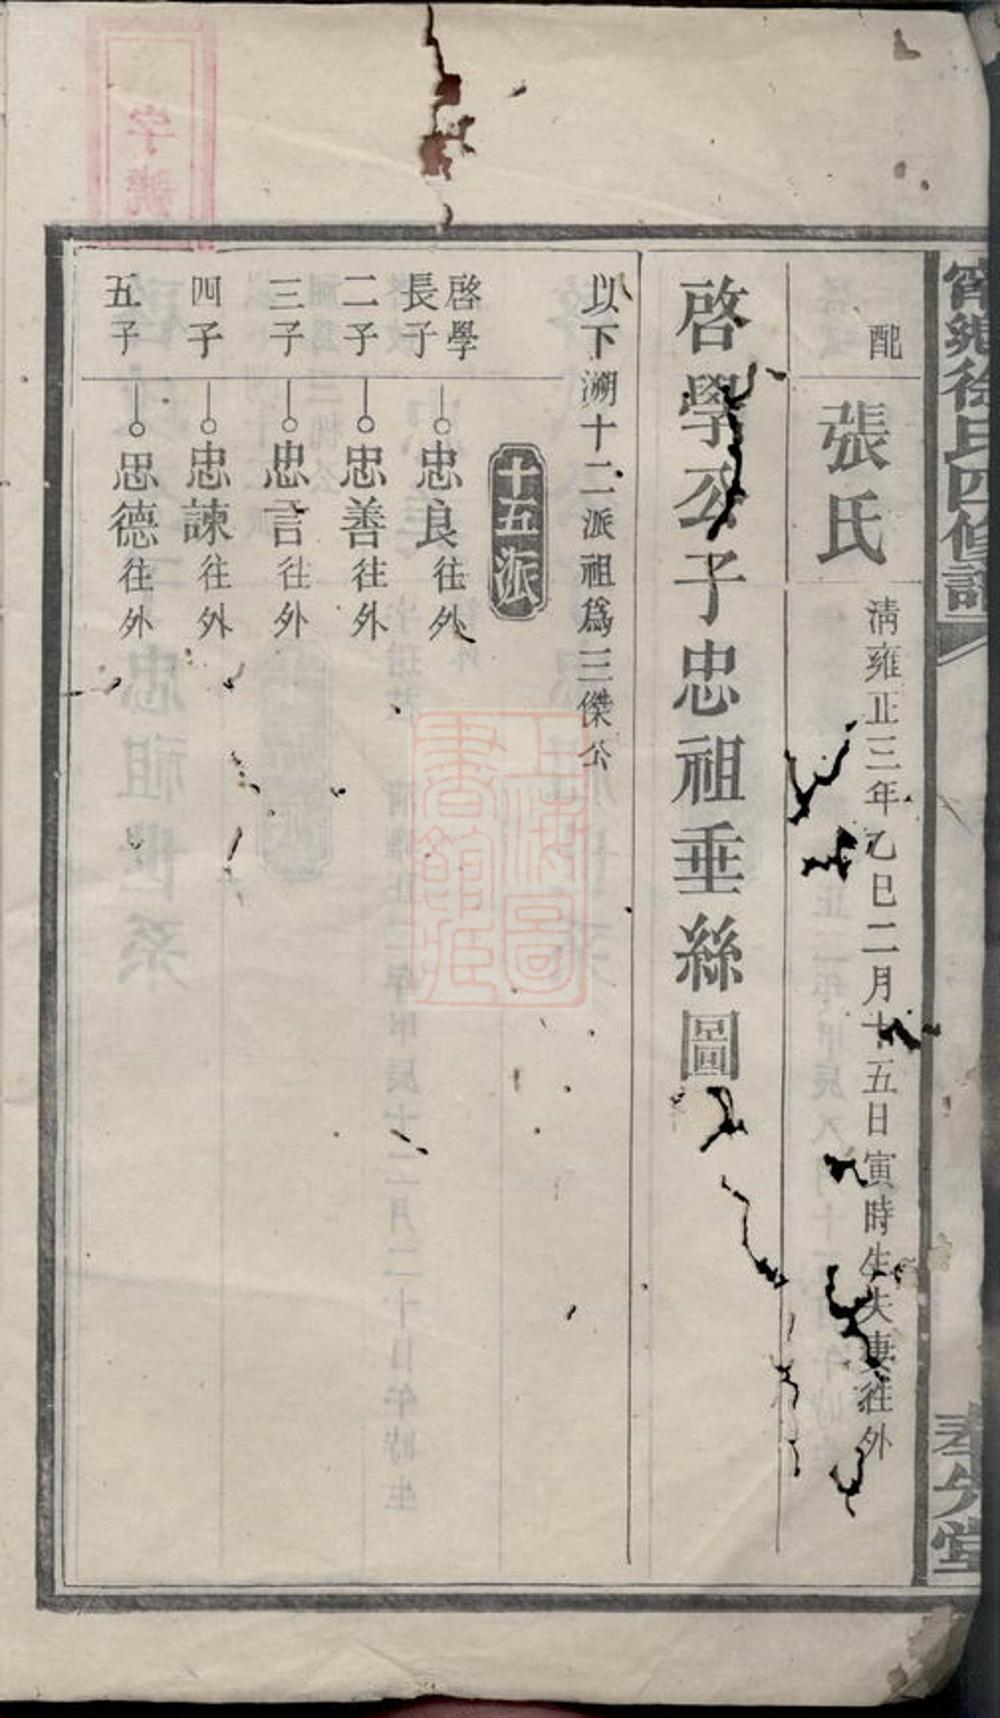 寗鄉徐氏四修譜
奉先堂
配
張氏
清雍正三年乙巳二月十五日寅時生夫妻往外
啓學公子忠祖垂絲圖
以下溯十二派祖爲三傑公
十五派
啓學
長子
忠良往外
二子
忠善往外
三子
忠言往外
四子
忠諫往外
五子
忠德往外
字號
上海圖書館藏